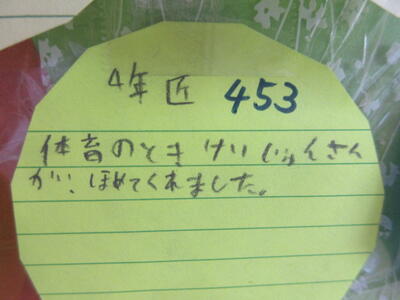 4年 匠 453
体育のとき けいじゅんさん
が、ほめてくれました。